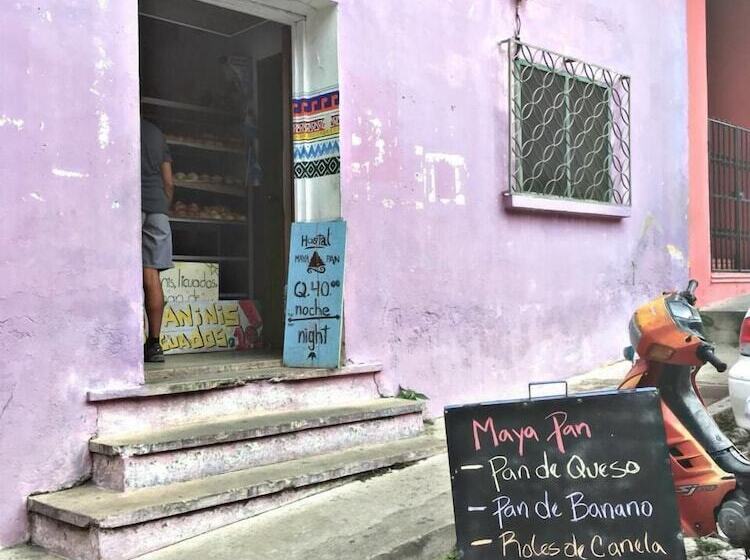 Hostal
MAYA PAN
Q.40.00
noche
night
nis, licuados
ANINIS
CUADOS
Maya Pan
- Pan de Queso
- Pan de Banano
- Roles de Canela